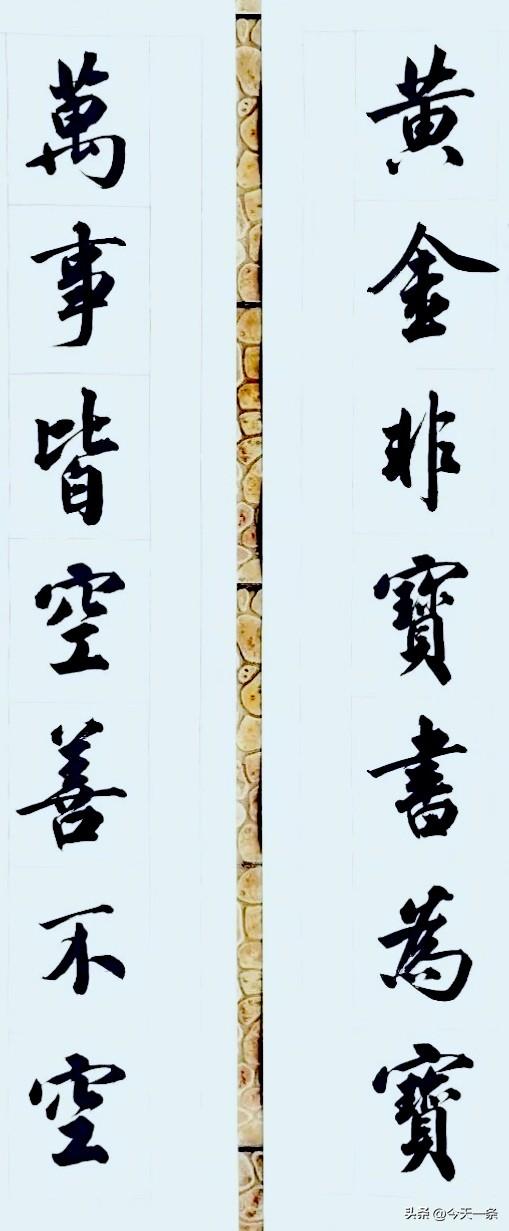 黃金非寶書為寶
萬事皆空善不空
头条@今天一条